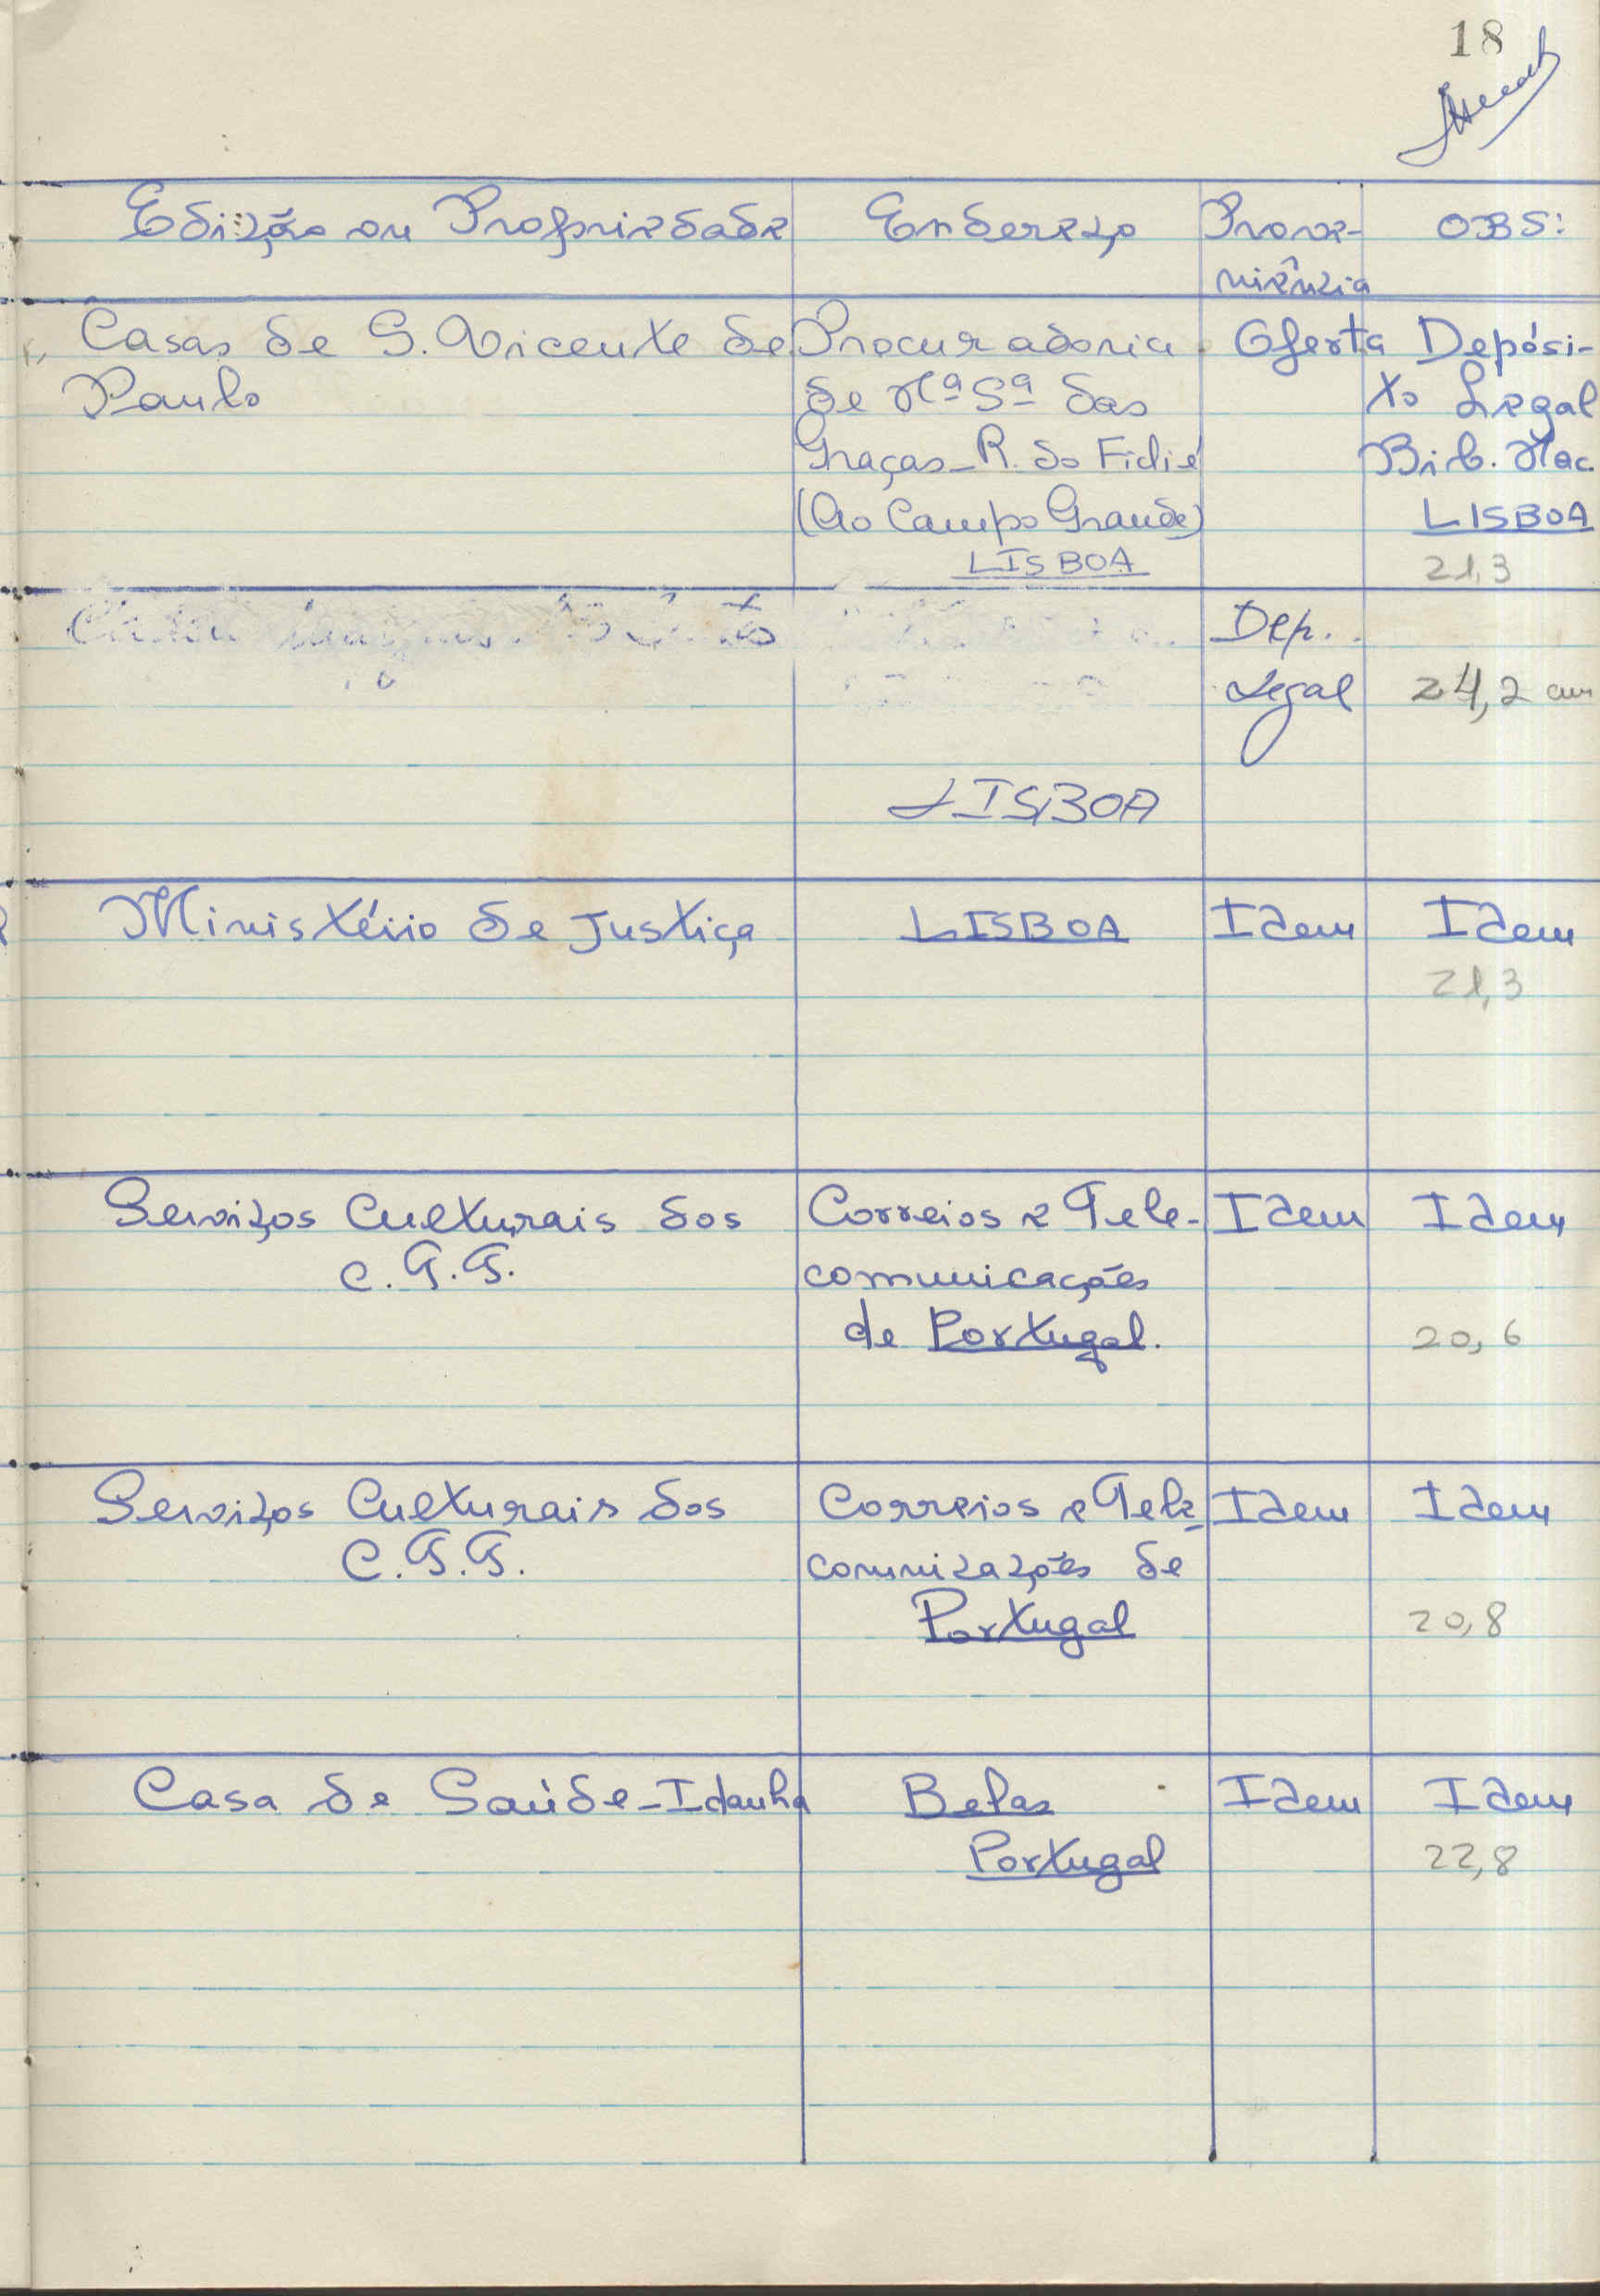 18
Edição ou Propriedade
Endereço
Prove-
niência
OBS:
Casas de S. Vicente de
Paulo
Procuradoria
de Nª Sª das
Graças - R. do Fidié
(Ao Campo Grande)
LISBOA
Oferta
Depósi-
to Legal
Bib. Nac.
LISBOA
21,3
LISBOA
Dep.
Legal
24,2 cm
Ministério de Justiça
LISBOA
Idem
Idem
21,3
Serviços Culturais dos
C.T.T.
Correios e Tele-
comunicações
de Portugal.
Idem
Idem
20,6
Serviços Culturais dos
C.T.T.
Correios e Tele-
comunicações de
Portugal
Idem
Idem
20,8
Casa de Saúde - Idanha
Belas
Portugal
Idem
Idem
22,8